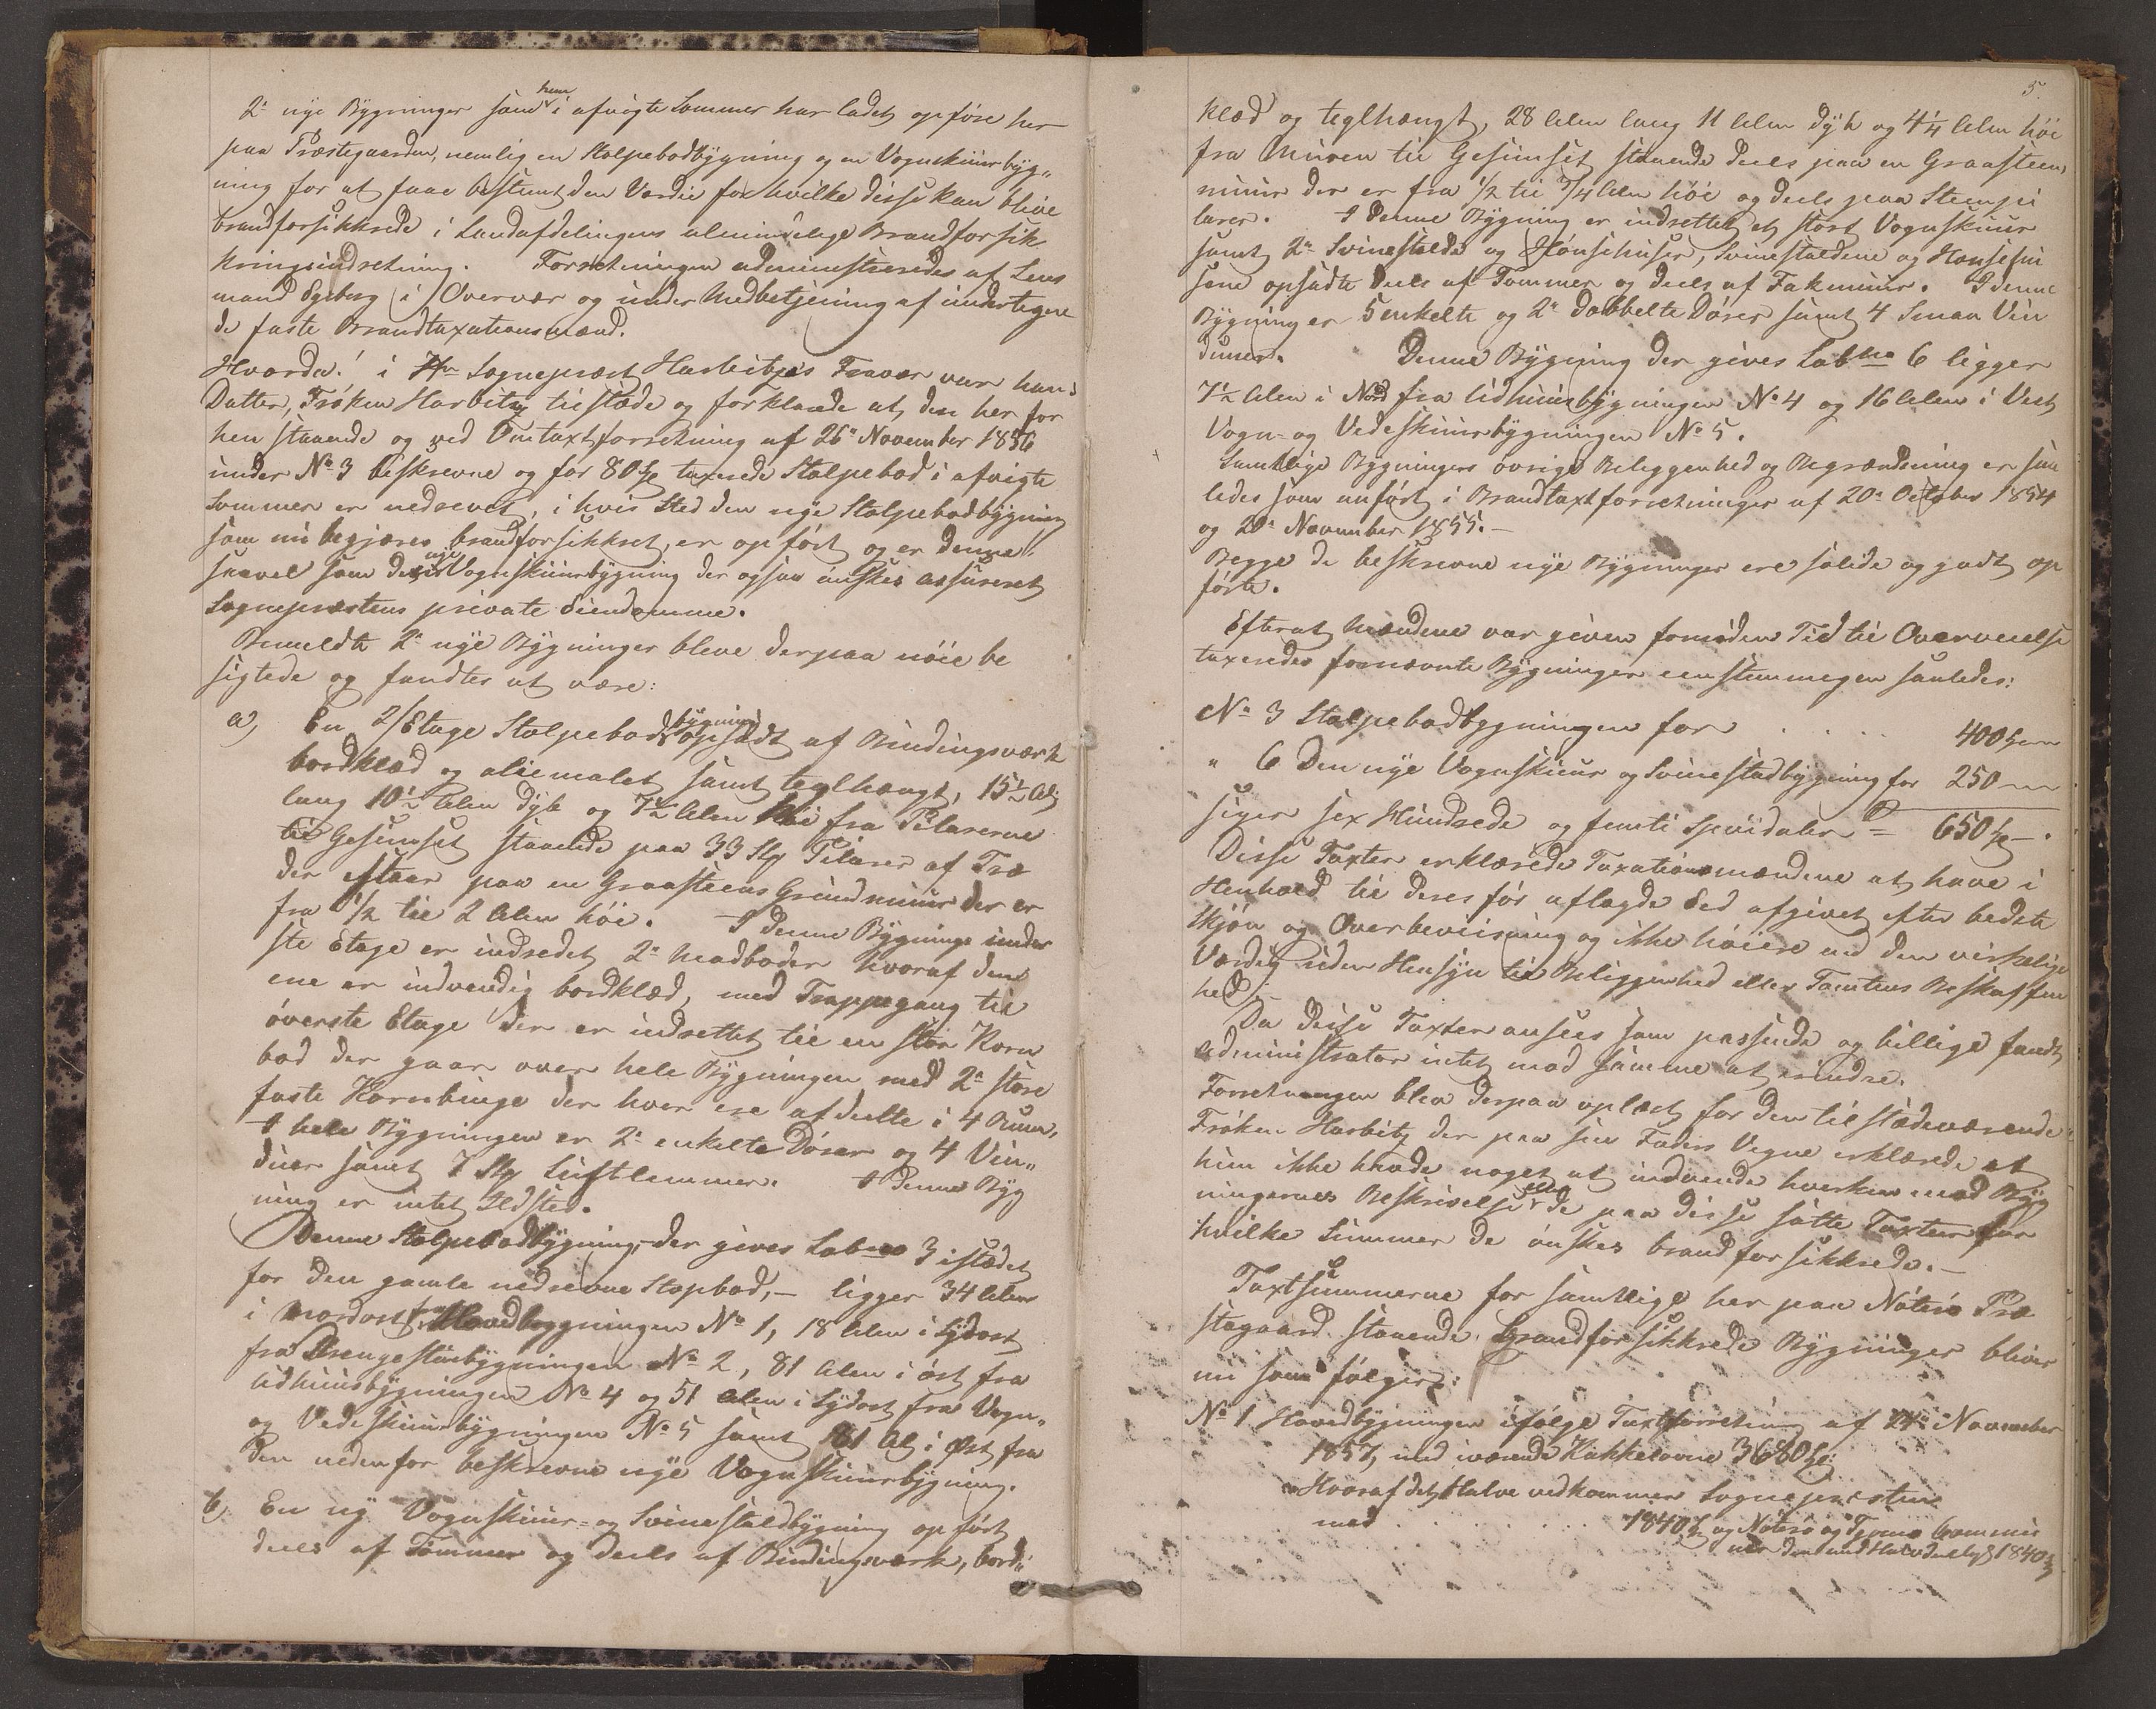 2de nye Bygninger som han i afvigte Sommer har ladet opføre her
paa Præstegaarden, nemlig en Stolpebodbygning og en Vognskuurbyg„
ning for at faae bestemt den Værdie for hvilke disse kan blive
brandforsikkrede i Landafdelingens almindelige Brandforsik
kringsindretning. Forretningen administreredes af Lens
mand Egeberg i Overvær og under Medbetjening af undertegne
de faste Brandtaxationsmænd.
Hvorda! i Hr Sognepræst Harbitz's Fravær var hans
Datter, Frøken Harbitz tilstæde og forklarede at den her for
hen staaende og ved Omtaxtforretning af 26de November 1856
under No 3 beskrevne og for 80 Spd taxerede Stolpebod i afvigte
Sommer er nedrevet, i hvis Sted den nye Stolpebodbygning
som nu begjæres brandforsikkret, er opført og er denne
saavel som den nye Vognskuurbygning der ogsaa ønskes assureret
Sognepræstens private Eiendomme.
Bemeldte 2de nye Bygninger bleve derpaa nøie be
sigtede og fandtes at være:
a) En 2/Etage Stolpebodbygning opsadt af Bindingsværk
bordklæd og oliemalet samt teglhængt, 15½ Al
lang 10½ Alen dyb og 7½ Alen høi fra Pilarerne
til Gesimset staaende paa 33 Stk Pilarer af Træ
der staar paa en Graasteens Grundmuur der er
fra ½ til 2 Alen høi. I denne Bygnings under
ste Etage er indredet 2de Madboder hvoraf den
ene er indvendig bordklæd, med Trappegang til
øverste Etage der er indrettet til en stor Korn
bod der gaar over hele Bygningen med 2de store
faste Kornbinge der hver ere afdeelte i 4 Rum,
I hele Bygningen er 2de enkelte Dører og 4 Vin„
duer samt 7 Stk Luftlemmer. I denne Byg
ning er intet Ildsted.
Denne Stolpebodbygning, der gives Lab no 3 istædet
for den gamle nedrevne Stopbod, — ligger 34 Alen
i Nordost fra Hovedbygningen No 1, 18 Alen i Sydost
fra Drengestuebygningen No 2, 81 Alen i øst fra
Udhuusbygningen No 4 og 51 Alen i Sydost fra Vogn„
og Vedeskuurbygningen No 5 samt 81 Al i Øst fra
den nedenfor beskrevne nye Vognskuurbygning.
b) En ny Vognskuur- og Svinestaldbygning opført
deels af Tømmer og deels af Bindingsværk, bord„
5.
klæd og teglhængt, 28 Alen lang 11 Alen dyb og 4¼ Alen høi
fra Muren til Gesimset staaende deels paa en Graasteens
muur der er fra ½ til 7/4 Alen høi og deels paa Steenpi
larer. I denne Bygning er indrettet et stort Vognskuur
samt 2de Svinestalde og Hønsehuser, Svinestaldene og Hønsehu
sene opsadte deels af Tømmer og deels af Fakmuur. I denne
Bygning er 5 enkelte og 2de dobbelte Dører samt 4 Smaa Vin
duer. Denne Bygning der gives Lab no 6 ligger
7½ Alen i Nord fra Udhuusbygningen No 4 og 16 Alen i Vest
Vogn- og Vedeskuurbygningen No 5.
Samtlige Bygningers øvrige Beliggenhed og Begrændsning er saa
ledes som anført i Brandtaxtforretninger af 20de October 1854
og 20de November 1855.—
Begge de beskrevne nye Bygninger ere solide og godt op
førte.
Efterat Mændene var given fornøden Tid til Overveielse
taxeredes fornævnte Bygninger eenstemmigen saaledes:
No 3 Stolpebodbygningen for . . . . 400 Spd
" 6 Den nye Vognskuur og Svinestadbygning for 250
siger sex Hundrede og femti Speciedaler = 650 Spd.
Disse Taxter erklærede Taxationsmændene at have i
Henhold til deres før aflagde Eed afgivet efter bedste
Skjøn og Overbeviisning og ikke høiere end den virkelige
Værdie uden Hensyn til Beliggenhed eller Tomtens Beskaffen
hed.
Da disse Taxter ansees som passende og billige fandt
administrator intet mod samme at erindre.
Forretningen blev derpaa oplæst for den tilstædeværende
Frøken Harbitz der paa sin Faders Vegne erklærede at
hun ikke havde noget at indvende hverken mod Byg
ningernes Beskrivelse eller de paa disse satte Taxter for
hvilke Summer de ønskes brandforsikkrede.—
Taxtsummerne for samtlige her paa Nøterø Præ
stegaard staaende Brandforsikkrede Bygninger bliver
nu som følger:
No 1 Hovedbygningen ifølge Taxtforretning af November
1857, med iværende Kakkelovne 3680 Spd
Hvoraf det Halve vedkommer Sognepresten
med . . . . 1840 Spd og Nøterø og Tjømø Commu
ner den med Halvdeel 1840